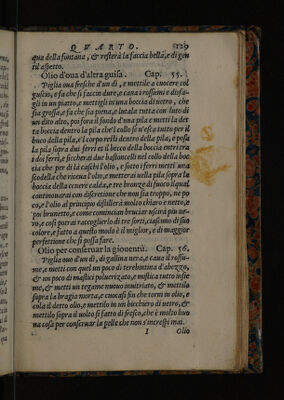 QVARTO. 129
qua della fontana, & resterà la faccia bella, e di gen
til aspetto.
Olio d'oua d'altra guisa. Cap. 55.
Piglia oua fresche d'un dì, e mettile a cuocere col
guscio, e fa che si faccin dure, e caua i rossumi e disfa-
gli in un piatto, e mettigli in una boccia di uetro, che
sia grossa, e fa che sia piena, e lutala tutta con luto di
un dito alto, poi fora il fondo d'una pila e metti la det
ta boccia dentro la pila che'l collo se n'esca tutto per il
buco della pila, e'l corpo resti dentro la pila, e posa
la pila sopra dui ferri et il becco della boccia entri tra
i doi ferri, e ficcherai due bastoncelli nel collo della boc
cia che per di là caschi l'olio, e sotto i ferri metti una
scodella che riceua l'olio, e metterai nella pila sopra la
boccia della cenere calda, e tre bronge di fuoco il qual
continouerai con discretione che non sia troppo, nè po
co, e l'olio al principio distillerà molto chiaro e netto, e
poi brunetto, e come comincia a bruciar uscirà più ne-
ro, e così potrai raccoglierlo di tre sorti, ciascuno di suo
colore, e fatto a questo modo è il miglior, e di maggior
perfettione che si possa fare.
Olio per conseruar la giouentù. Cap. 56.
Piglia oua d'un dì, di gallina nera, e caua il rossu-
me, e metti con quel un poco di terebentina d'abezzo,
& un poco di mastice poluerizato, e mistica tutto insie
me, & metti un tegame nuouo inuitriato, & mettilo
sopra la bragia morta, e cuoca si fin che torni in olio, e
cola il detto olio, e mettilo in un bicchiero di uetro, &
mettilo sopra il uolto si fatto di fresco, che è molto buo
na cosa per conseruar la pelle che non s'increspi mai.
I Olio